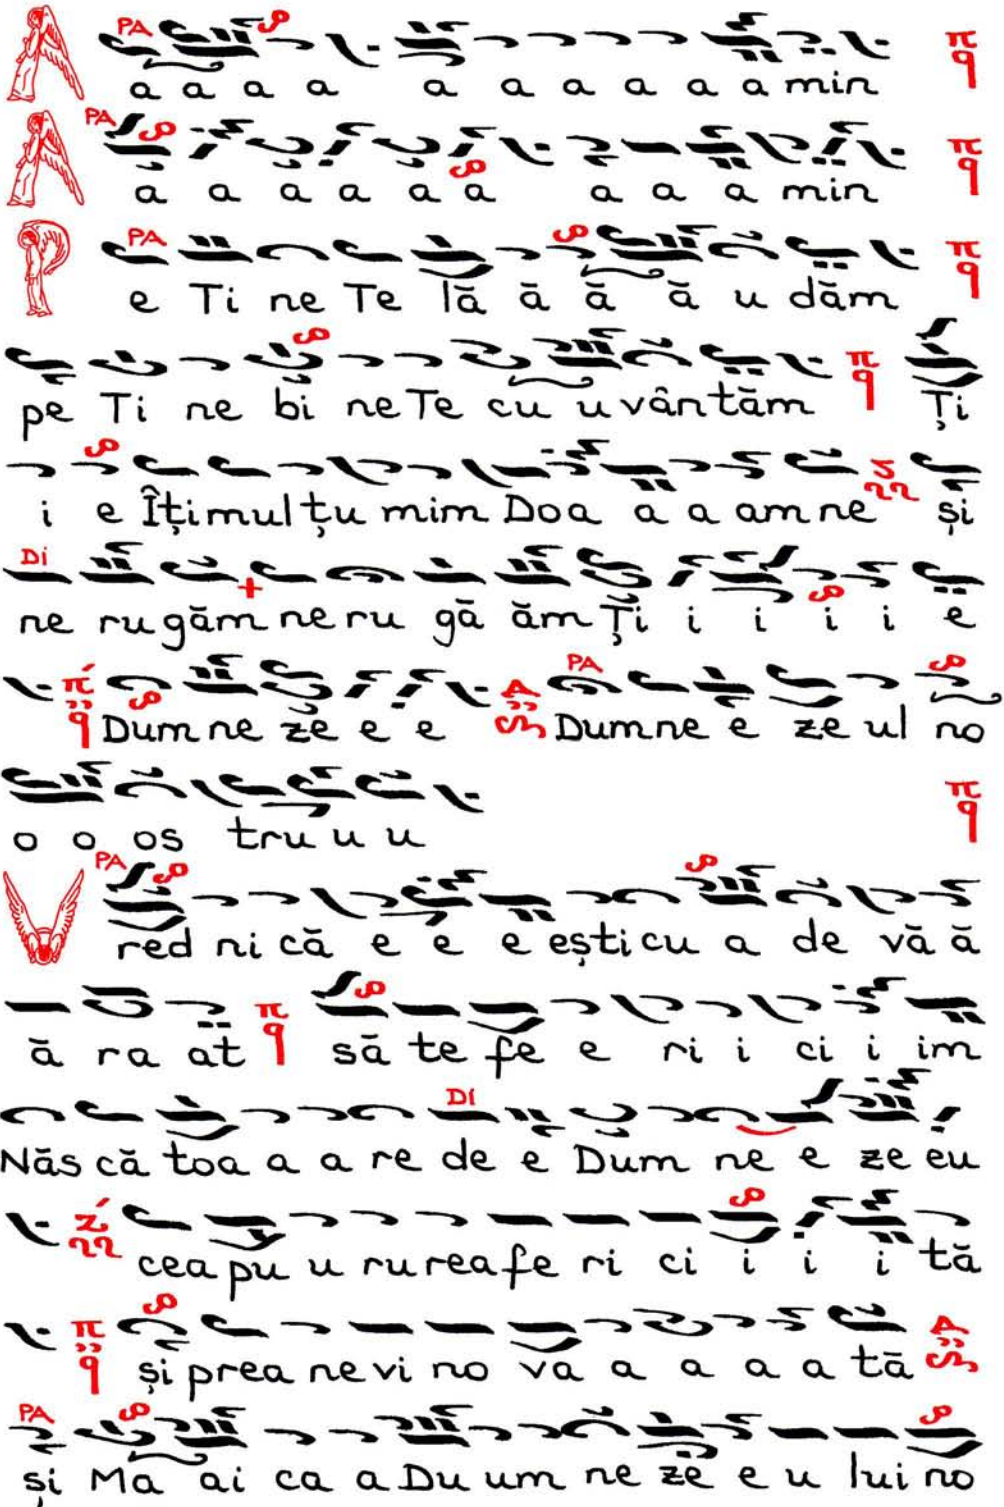 PA
a a a a a a a a a a min
PA
a a a a a a a a a min
PA
e Ti ne Te lă ă ă ă u dăm
pe Ti ne bi ne Te cu u vântăm Ți
i e Îți mul țu mim Doa a a am ne și
Di
ne rugăm ne ru gă ăm Ți i i i i e
PA
Dum ne ze e e Dumne e ze ul no
o o os tru u u
PA
red ni că e e e ești cu a de vă ă
ă ra at să te fe e ri i ci i im
Di
Năs că toa a a re de e Dum ne e ze eu
cea pu u ru rea fe ri ci i i i tă
și prea ne vi no va a a a a tă
PA
și Ma ai ca a Du um ne ze e u lui no